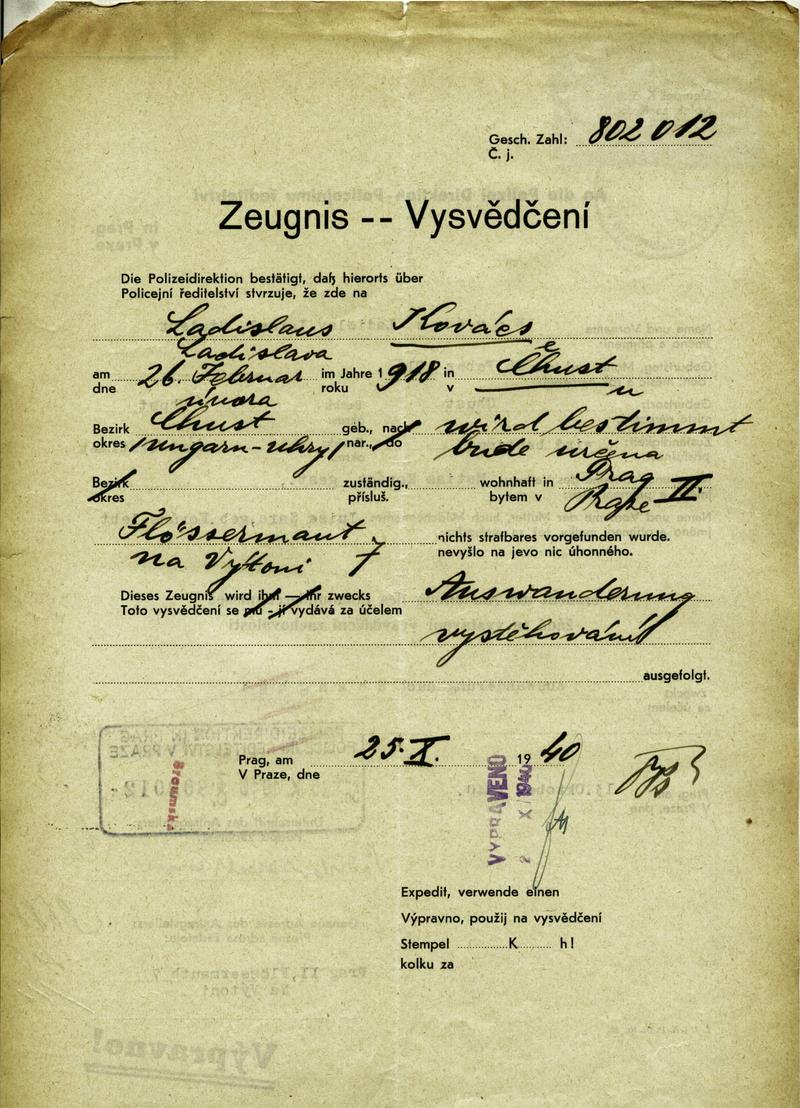 Gesch. Zahl: 802 012
Č. j.
Zeugnis -- Vysvědčení
Die Polizeidirektion bestätigt, daß hierorts über
Policejní ředitelství stvrzuje, že zde na
Ladislaus Kovács
Ladislava e
am 26. Februar im Jahre 1918 in Chust
dne února roku v u
Bezirk Chust geb., nach wird bestimmt
okres /Ungarn-Uhry/ nar., do bude určena
Bezirk zuständig., wohnhaft in Prag II.
okres přísluš. bytem v Praze
Flössermaut 7 nichts strafbares vorgefunden wurde.
na Výtoni nevyšlo na jevo nic úhonného.
Dieses Zeugnis wird ihm — ihr zwecks Auswanderung
Toto vysvědčení se mu - jí vydává za účelem
vystěhování
ausgefolgt.
Prag, am 25. X. 19 40
V Praze, dne
VYPRAVENO
X 1940
Expedit, verwende einen
Výpravno, použij na vysvědčení
Stempel K h!
kolku za